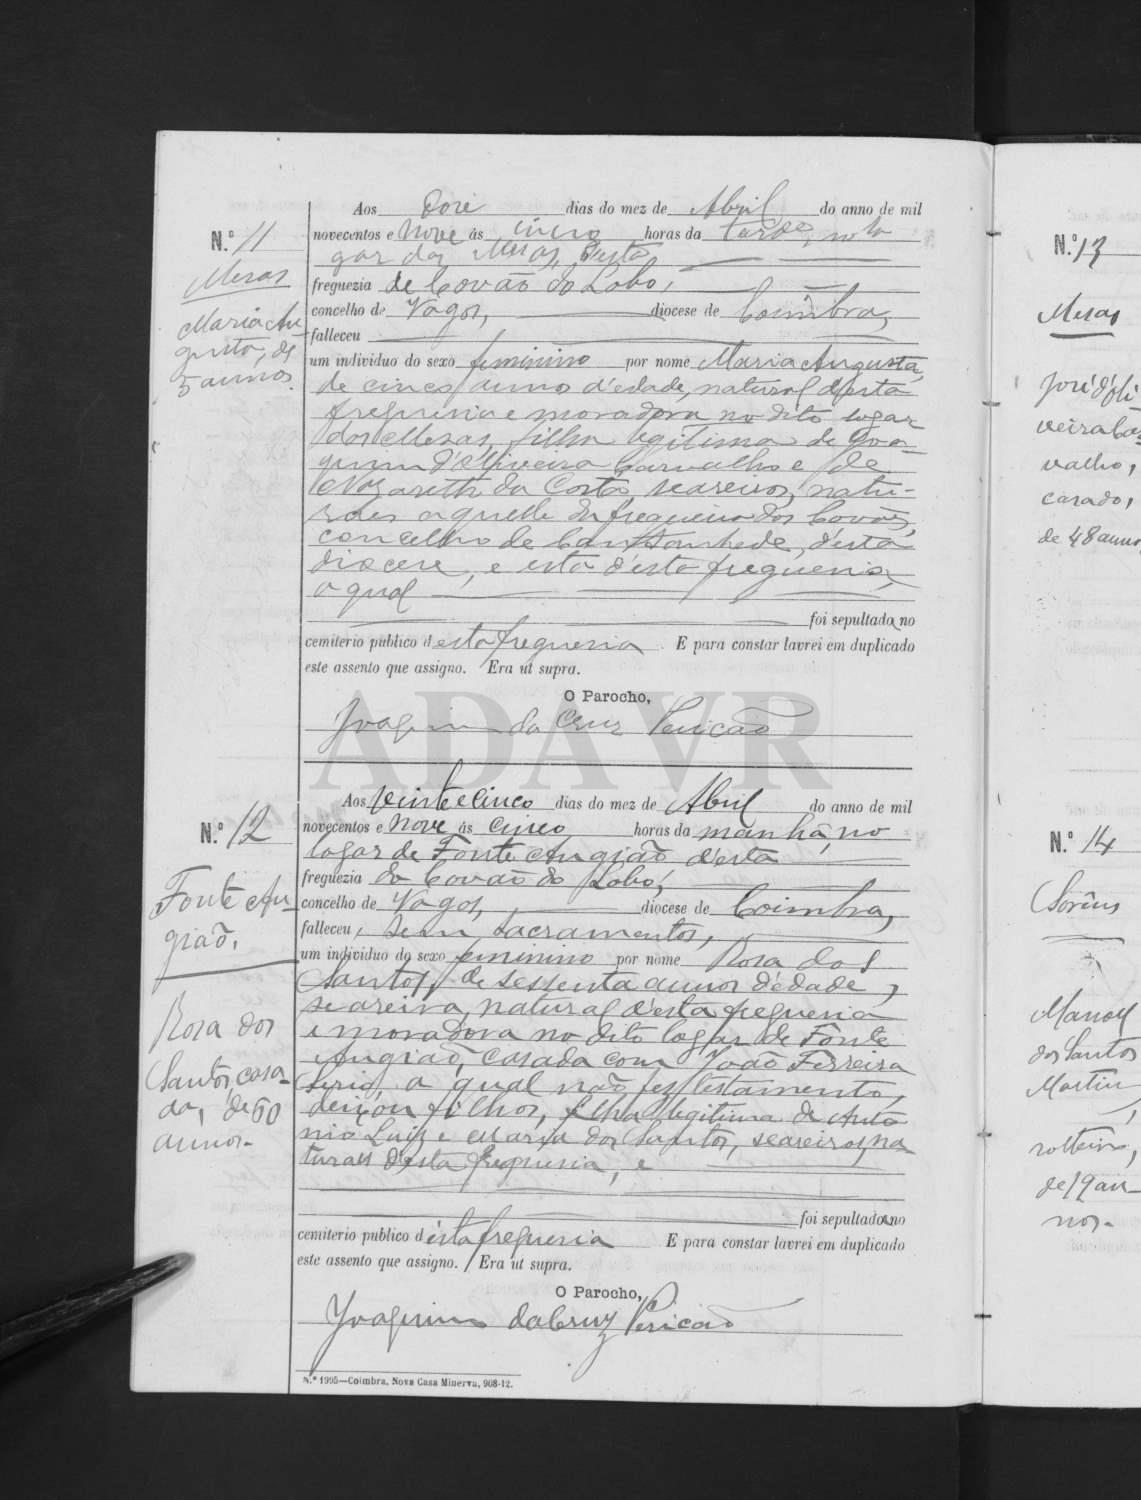 N.º 11
Mesas
Maria Au-
gusta, de
5 annos.
Aos doze dias do mez de Abril do anno de mil
novecentos e nove ás cinco horas da tarde, no lo
gar das Mesas, d'esta
freguezia de Covão do Lobo,
concelho de Vagos, diocese de Coimbra,
falleceu
um individuo do sexo feminino por nome Maria Augusta,
de cinco annos d'edade, natural d'esta
freguesia e moradora no dito logar
das Mesas, filha legitima de Joa-
quim d'Oliveira Carvalho e de
Nazareth da Costa, seareiros, natu-
raes aquelle da freguesia dos Covões,
concelho de Cantanhede, d'esta
diocese, e esta d'esta freguesia,
a qual
foi sepultada no
cemiterio publico d'esta freguesia E para constar lavrei em duplicado
este assento que assigno. Era ut supra.
O Parocho,
Joaquim da Cruz Pericão
ADAVR
N.º 12
Fonte An-
gião.
Rosa dos
Santos, casa-
da, de 60
annos.
Aos vinte e cinco dias do mez de Abril do anno de mil
novecentos e nove ás cinco horas da manhã, no
logar de Fonte Angião d'esta
freguezia do Covão do Lobo,
concelho de Vagos, diocese de Coimbra,
falleceu, sem sacramentos,
um individuo do sexo feminino por nome Rosa dos
Santos, de sessenta annos d'edade,
seareira, natural d'esta freguesia
e moradora no dito logar de Fonte
Angião, casada com João Ferreira
a qual não fez testamento,
deixou filhos, filha legitima de Anto
nio Luiz e Maria dos Santos, seareiros, na
turaes d'esta freguesia, e
foi sepultada no
cemiterio publico d'esta freguesia E para constar lavrei em duplicado
este assento que assigno. Era ut supra.
O Parocho,
Joaquim da Cruz Pericão
N.º 1995—Coimbra, Nova Casa Minerva, 908-12.
N.º 13
Mesas
José d'Oli
veira Car
valho,
casado,
de 48 annos
N.º 14
Manoel
dos Santos
Martins,
solteiro,
de 19 an-
nos.